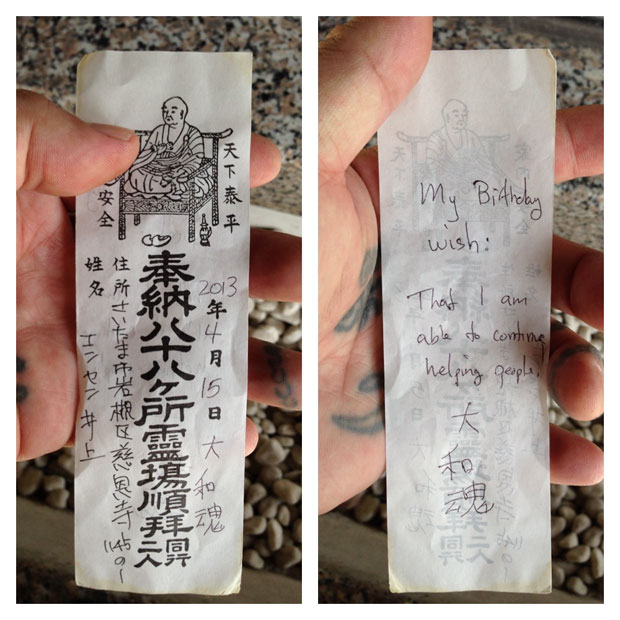 天下泰平
安全
2013年4月15日 大和魂
奉納八十八ヶ所靈場順拜同行二人
住所さいたま市岩槻区慈恩寺
姓名 エンセン井上
My Birthday
wish:
That I am
able to continue
helping people.
大和魂